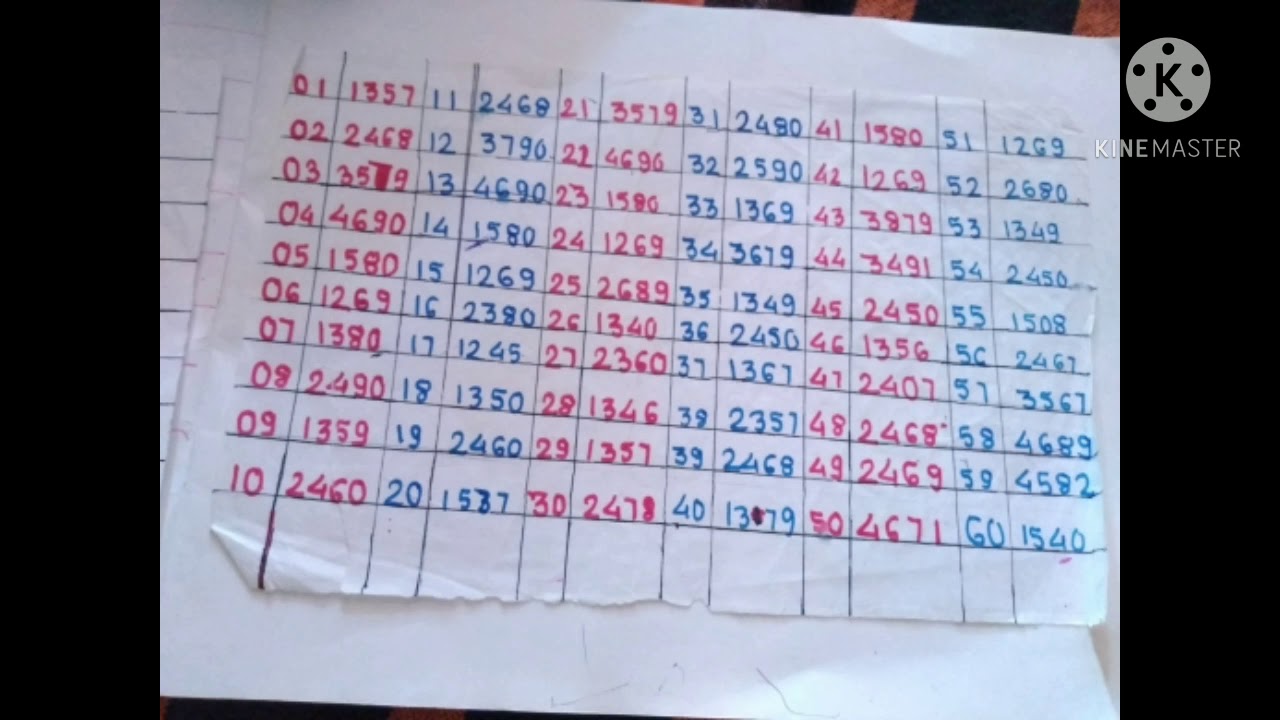 01 1357 11 2468 21 3579 31 2480 41 1580 51 1269
02 2468 12 3790 22 4690 32 2590 42 1269 52 2680
03 3579 13 4690 23 1580 33 1369 43 3879 53 1349
04 4690 14 1580 24 1269 34 3679 44 3491 54 2450
05 1580 15 1269 25 2689 35 1349 45 2450 55 1508
06 1269 16 2380 26 1340 36 2450 46 1356 56 2467
07 1380 17 1245 27 2360 37 1367 47 2407 57 3567
08 2490 18 1350 28 1346 38 2357 48 2468 58 4689
09 1359 19 2460 29 1357 39 2468 49 2469 59 4582
10 2460 20 1537 30 2478 40 1379 50 4671 60 1540
K
KINEMASTER